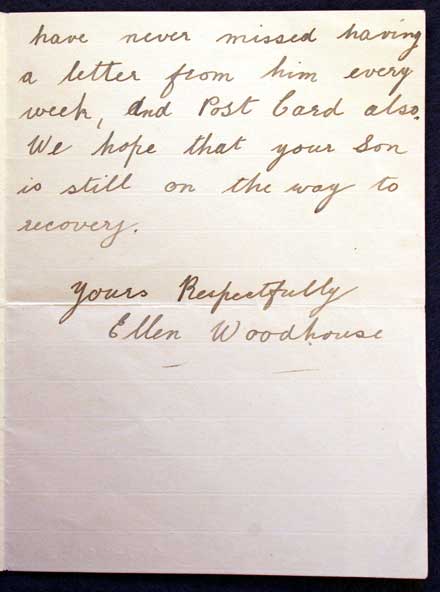 have never missed having
a letter from him every
week, and Post Card also.
We hope that your Son
is still on the way to
recovery.
Yours Respectfully
Ellen Woodhouse